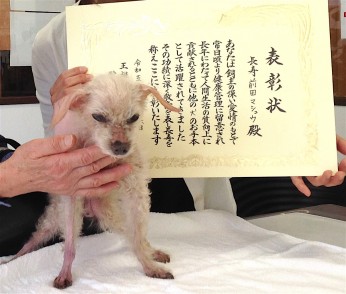 表彰状
長寿 前田マシュウ 殿
あなたは飼主の深い愛情のもとで
常日頃より健康管理に留意され
長年にわたって人間生活の質向上に
貢献されるとともに他の犬のお手本
として活躍されてきました
その功績に深く敬意を表し長寿を
称えここに表彰いたします
令和